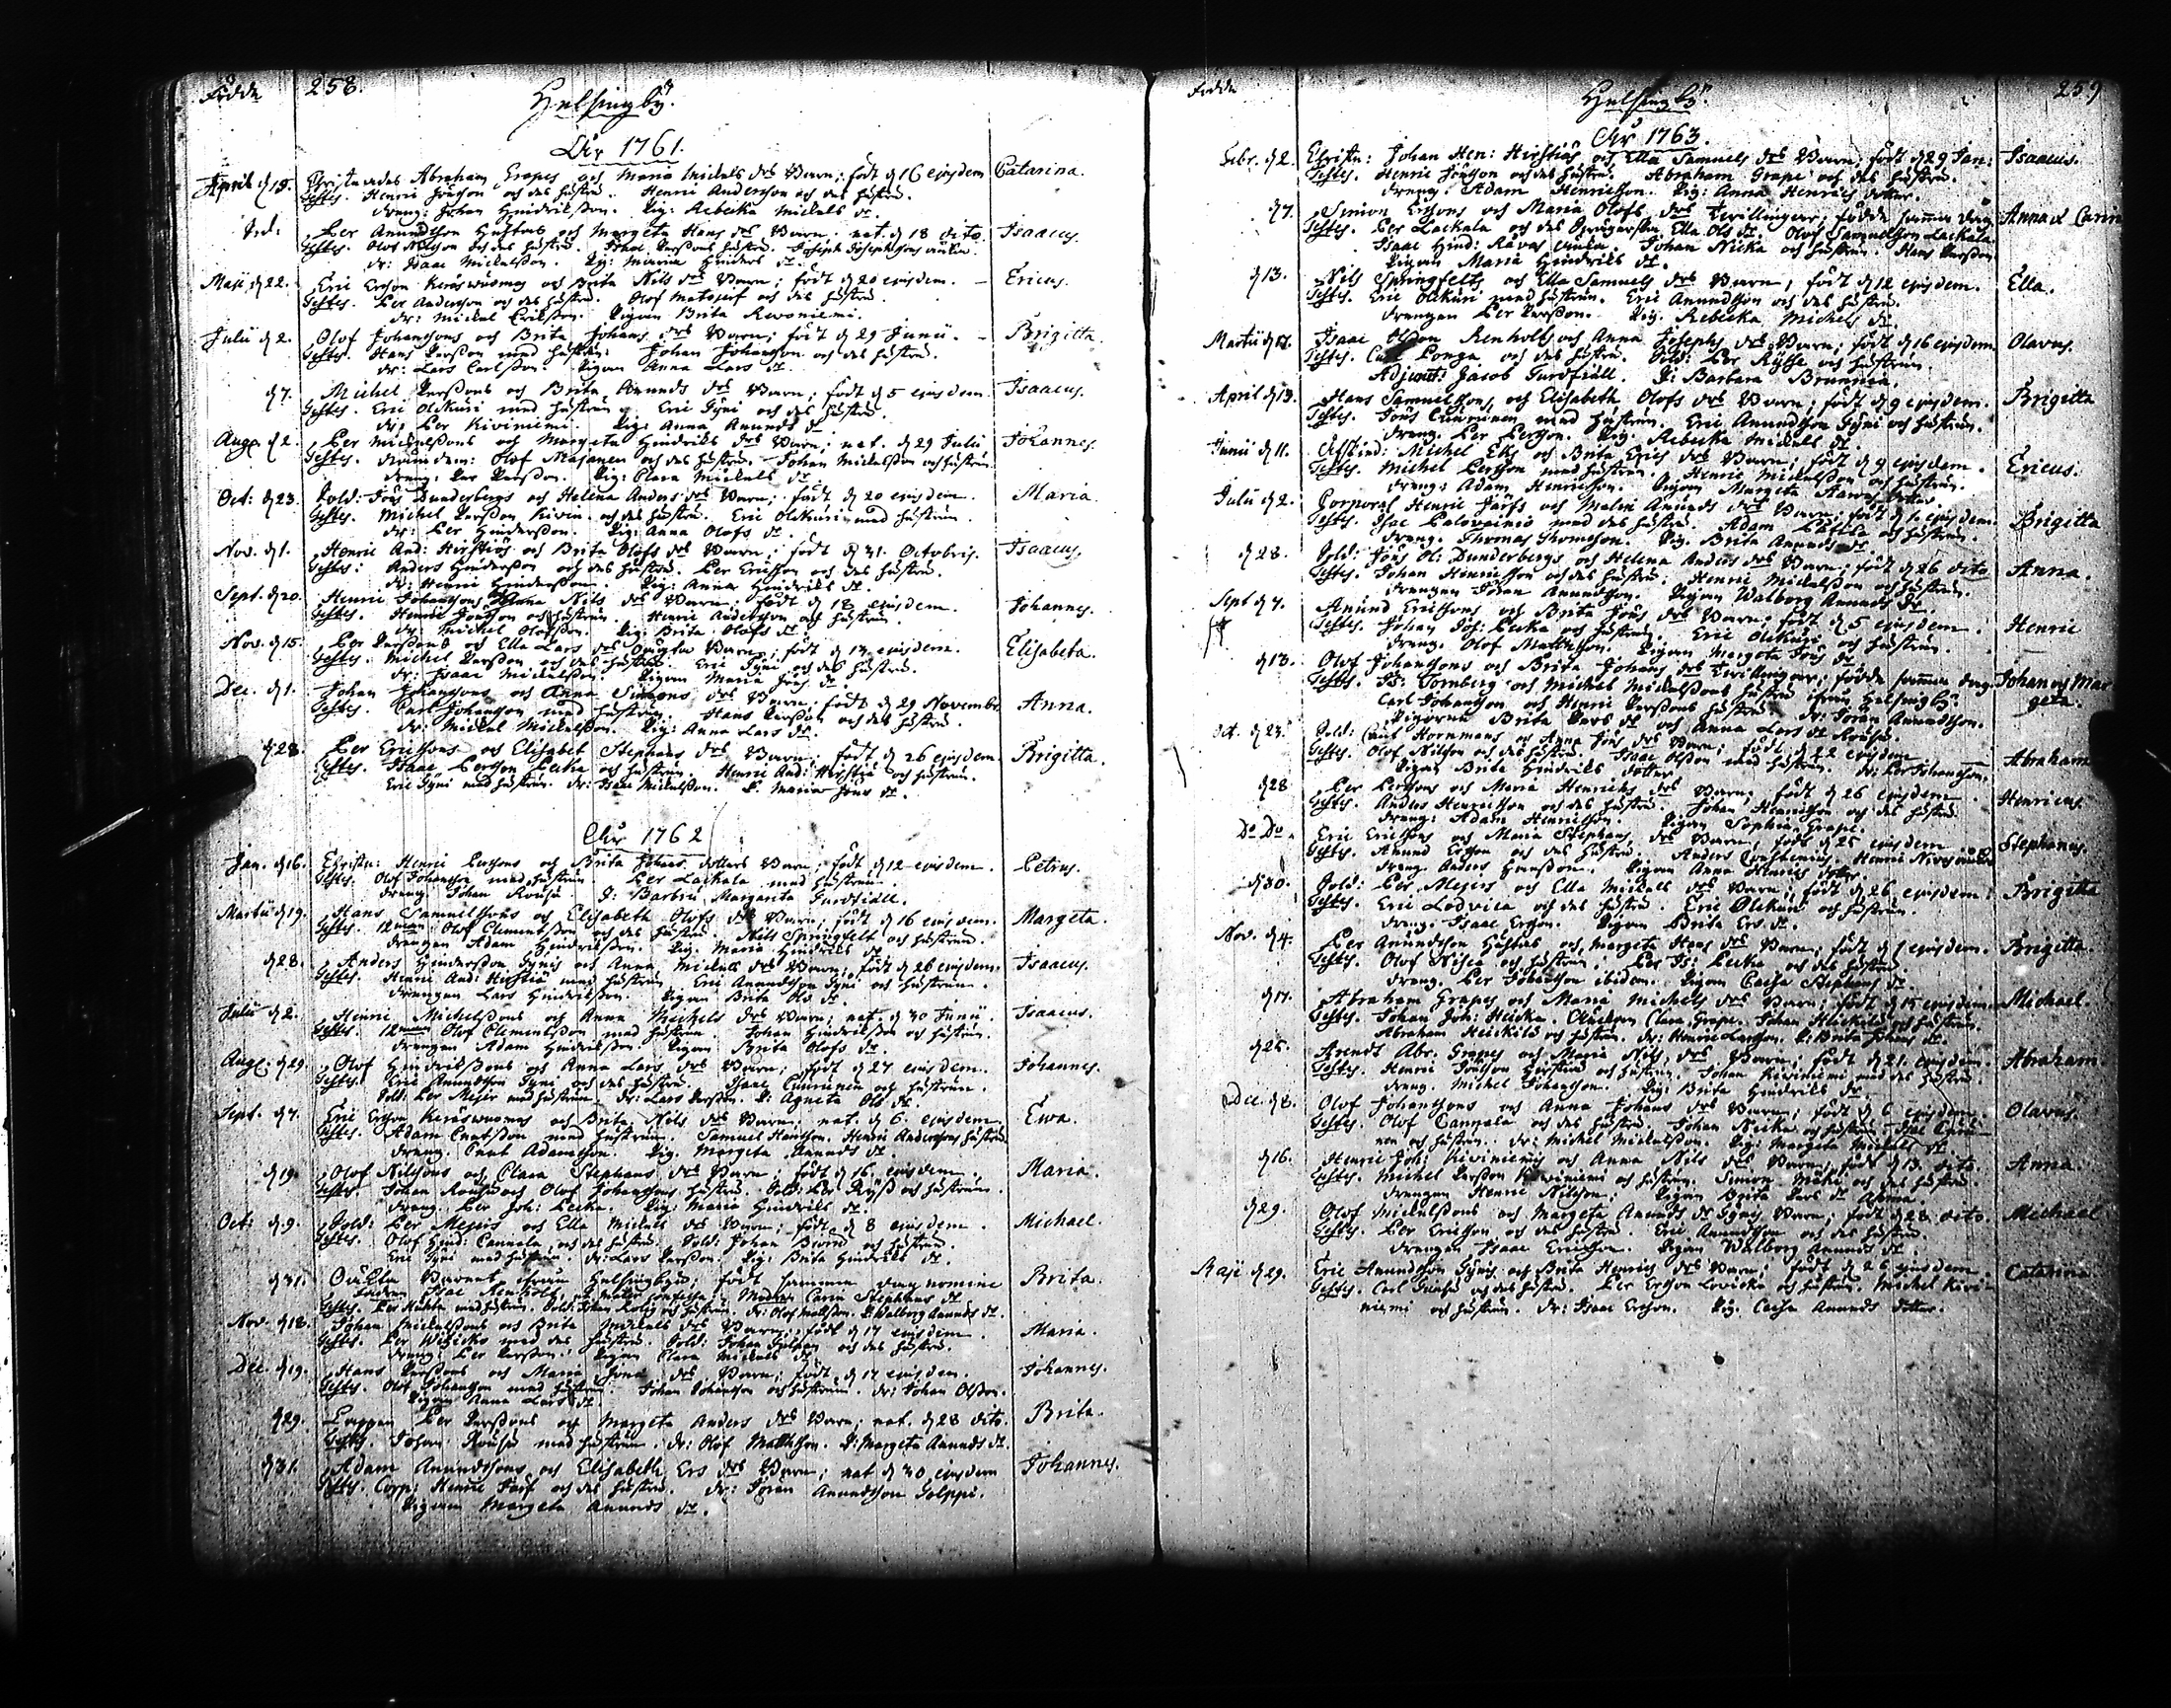 Födde 258. Helsingby.
Åhr 1761.
April d 19. Christnades Abraham Grapes och Maria Mickels drs Barn; födt d 16 ejusdem Catarina.
Testes. Henric Jönsson och des hustru. Henric Andersson och des hustru.
dreng: Johan Hindriksson. Pig: Rebecka Mickels dr.
Per Anundsson Hustas och Margeta Hans drs Barn. nat. d 18 dito. Isaacus.
Testes. Olof Nilsson och des hustru. Isaac Perssons hustru. Joseph Josephssons
dr: Isaac Mickelsson. Pig: Maria Hinders dr.
Maji d 22. Eric Ersson Keräswuomas och Brita Nils drs Barn; födt d 20 ejusdem. Ericus.
Testes. Per Andersson och des hustru. Olof och des hustru.
dr: Mickel Eriksson. Pigan Brita Rewoniemi.
Julii d 2. Olof Johanssons och Brita Johans drs Barn; födt d 29 Junii. Brigitta.
Testes. Hans Persson med hustru. Johan Johansson och des hustru.
dr: Lars Carlsson. Pigan Anna Lars dr.
d 7. Michel Perssons och Brita Anunds drs Barn; födt d 5 ejusdem. Isaacus.
Testes. Eric Olckuri med hustru. Eric Fyni och des hustru.
dr: Per Kiviniemi. Pig: Anna Anunds dr.
Aug. d 2. Per Mickelssons och Margeta Hindriks drs Barn; nat. d 29 Julii Johannes.
Testes. Olof Majanen och des hustru. Johan Mickelsson och hustru.
dreng: Per Persson. Pig: Clara Mickels dr.
Oct: d 23. Sold: Jöns Dunderbergs och Helena Anders drs Barn; födt d 20 ejusdem. Maria.
Testes. Michel Persson Kivin. och des hustru. Eric Olckuri med hustrun.
dr: Per Hindersson. Pig: Anna Olofs dr.
Nov. d 1. Henric And: Hirstiös och Brita Olofs drs Barn; födt d 31. Octobris. Isaacus.
Testes: Anders Hindersson och des hustru. Per Ericsson och des hustru.
dr: Henric Hindersson. Pig: Anna Hindriks dr.
Sept. d 20. Henric Johanssons Anna Nils drs Barn; födt d 18 ejusdem. Johannes.
Testes. Henric Jönsson och hustrun. Henric Andersson och hustrun.
dr: Michel Olofsson. Pig: Brita Olofs dr.
Nov. d 15. Per Perssons och Ella Lars drs Barn; födt d 14 ejusdem. Elisabeta.
Testes. Michel Persson och des hustru. Eric Fyni och des hustru.
dr: Isaac Mickelsson. Pigan Maria Jöns dr.
Dec. d 1. Johan Johanssons och Anna Simons drs Barn födt d 29 Novembr. Anna.
Testes. Carl Johansson med hustrun. Hans Persson och des hustru.
dr: Mickel Mickelsson. Pig: Anna Lars dr.
d 28. Per Ericssons och Elisabet Stephans drs Barn, födt d 26 ejusdem. Brigitta.
Testes. Isaac Persson Lecka och hustrun. Henric And: Hirstiö och hustrun.
Eric Fyni med hustrun. dr: Isaac Mickelsson. P. Maria Jöns dr.
Åhr 1762
Jan. d 16. Christn: Henric Perssons och Brita Johans dotters Barn; födt d 12 ejusdem. Petrus.
Testes. Olof Johansson med hustrun. Per Lackala med hustrun.
dreng Johan Rousu. J: Barbru Margareta Turdfiäll.
Martii d 19. Hans Samuelssons och Elisabeth Olofs drs Barn; födt d 16 ejusdem. Margeta.
Testes. 12man Olof Clementsson och des hustru. Nils Springfelt och hustrun.
drengen Adam Hindriksson. Pig: Maria Hindriks dr.
d 28. Anders Hindersson Fynis och Anna Mickels drs Barn; födt d 26 ejusdem. Isaacus.
Testes. Henric And: Hirstiö med hustrun. Eric Anundsson Fyni och hustrun.
drengen Lars Hindriksson. Pigan Brita Ols dr.
Julii d 2. Henric Michelssons och Anna Michels drs Barn; nat. d 30 Junii. Isaacus.
Testes. 12man Olof Clementsson med hustrun. Johan Hindriksson och hustrun.
drengen Adam Hindriksson. Pigan Brita Olofs dr.
Aug. d 29. Olof Hindrikssons och Anna Lars drs Barn; födt d 27 ejusdem. Johannes.
Testes. Eric Anundsson Fyni och des hustru. Isaac Cuurinen och hustrun.
Sold: Per Mejer med hustrun. dr: Lars Persson. P: Agneta Ols dr.
Sept. d 7. Eric Ersson Keräswuomas och Brita Nils drs Barn; nat. d 6. ejusdem. Ewa.
Testes. Adam Cnutsson med hustrun. Samuel Hansson. Henric Anderssons hustru.
dreng. Cnut Adamsson. Pig. Margeta Anunds dr.
d 19. Olof Nilssons och Clara Stephans drs Barn; födt d 16 ejusdem. Maria.
Testes. Johan Rousu och Olof Johanssons hustru. Sold: Per Ryss och hustrun.
dreng. Per Joh: Lecka. Pig: Maria Hindriks dr.
Oct: d 9. Sold: Per Mejers och Ella Mickels drs Barn; födt d 8 ejusdem. Michael.
Testes. Olof Hind: Cannala, och des hustru. Sold: Johan Biörn och hustrun.
Eric Fyni med hustrun. dr: Lars Persson. Pig: Brita Hindriks dr.
d 31. Oäckta Barnet ifrån Helsingby; födt samma dag nomine Brita.
Fadren Isac Renholt, ut mater confessa; Modren Carin Stephans dr
Testes. Per Huhta med hustrun. Sold: Johan Rolig och hustrun. dr: Olof Mattsson. P. Walborg Anunds dr.
Nov. d 18. Johan Mickelssons och Brita Mickels drs Barn; födt d 17 ejusdem. Maria.
Testes. Per med des hustru. Sold: Johan och des hustru.
dreng: Per Persson. Pigan Clara Mickels dr.
Dec. d 19. Hans Perssons och Maria Jöns drs Barn; födt d 17 ejusdem. Johannes.
Testes. Olof Johansson med hustrun. Johan Johansson och hustrun. dr: Johan Olsson.
Pigan Anna Lars dr.
d 29. Lappen Per Perssons och Margeta Anders drs Barn; nat. d 28 dito. Brita.
Testes. Johan Rousu med hustrun. dr: Olof Mattsson. P: Margeta Anunds dr.
d 31. Adam Anundssons och Elisabeth Ers drs Barn; nat d 30 ejusdem Johannes.
Testes. Corp: Henric Järf och des hustru. dr: Jöran Anundsson Tolppi.
Pigan Margeta Anunds dr.
Födde Helsingby. 259
Åhr 1763.
Febr. d 2. Christn: Johan Hen: Hirstiös och Ella Samuels drs Barn; födt d 29 Jan: Isaacus.
Testes. Henric Jönsson och des hustru. Abraham Grape och des hustru.
dreng: Adam Henricsson. Pig: Anna Henrics dotter.
d 7. Simon Erssons och Maria Olofs drs Twillingar; födde samma dag Anna & Carin
Testes. Per Lackala och des Ella Ols dr. Olof Samuelsson Lackala
Isaac Hind: Johan Nicka och hustrun. Hans Persson
Pigan Maria Hindriks dr.
d 13. Nils Springfelts och Ella Samuels drs Barn; födt d 12 ejusdem. Ella.
Testes. Eric Olckuri med hustrun. Eric Anundsson och des hustru.
drengen Per Persson. Pig. Rebecka Michels dr.
Martii d 17. Isaac Olsson Renholts och Anna Josephs drs Barn; födt d 16 ejusdem. Olavus.
Testes. Carl Longa och des hustru. Sold: Per Rysse och hustrun.
Adjunct: Jacob Turdfiäll. J: Barbara Brunnia.
April d 13. Hans Samuelssons, och Elisabeth Olofs drs Barn; födt d 9 ejusdem. Brigitta
Testes. Jöns Cuurinen med hustrun. Eric Anundsson Fyni och hustrun.
dreng. Per Persson. Pig. Rebecka Mickels dr.
Junii d 11. Michel Eks och Brita Erics drs Barn; födt d 9 ejusdem. Ericus.
Testes. Michel Persson med hustrun. Henric Mickelsson och hustrun.
dreng: Adam Henricsson. Pigan Margeta dotter
Julii d 2. Corporal Henric Järfs och Malin Anunds drs Barn; födt d 1. ejusdem. Brigitta
Testes. Isac Palovainio med des hustru. Adam och hustrun.
dreng. Thomas Thomsson. Pig. Brita Anunds dr.
d 28. Sold: Jöns Ol: Dunderbergs och Helena Anders drs Barn; födt d 26 dito Anna.
Testes. Johan Henricsson och des hustru. Henric Mickelsson och hustrun.
drengen Jöran Anundsson. Pigan Walborg Anunds dr.
Sept d 7. Anund Ericssons och Brita Jöns drs Barn; födt d 5 ejusdem. Henric
Testes. Johan Joh: Lecka och hustrun. Eric Olckuri och hustrun.
dreng. Olof Mattsson. Pigan Margeta Jöns dr.
d 18. Olof Johanssons och Brita Johans drs Twillingar; födde samma dag. Johan och Mar
geta.
Testes. Tornberg och Michel Mickelssons hustru ifrån Helsingby.
Carl Johansson och Henric Perssons hustru. dr: Jöran Anundsson.
Pigorna Brita Pers dr och Anna Lars dr Rousu.
Oct. d 23. Sold: Cnut Hornmans och Anna Jöns drs Barn; födt d 22 ejusdem Abraham
Testes. Olof Nilsson och des hustru. Isaac Olsson med hustrun. dr: Per Johansson.
Pigan Brita Hindriks dotter.
d 28 Per Perssons och Maria Henriks drs Barn; födt d 26 ejusdem. Henricus.
Testes. Anders Henricsson och des hustru. Johan Henricsson och des hustru.
dreng: Adam Henricsson. Pigan Sophia Grape.
Do Do. Eric Ericssons och Maria Stephans drs Barn; födt d 25 ejusdem Stephanus.
Testes. Anund Ersson och des hustru. Anders Henric
dreng. Anders Hansson. Pigan Anna Henrics dotter.
d 30. Sold: Per Mejers och Ella Mickels drs Barn; födt d 26 ejusdem. Brigitta
Testes. Eric Lodvica och des hustru. Eric Olckuri och hustrun.
dreng. Isaac Ersson. Pigan Brita Ers dr.
Nov. d 4. Per Anundsson Hustas och Margeta Hans drs Barn; födt d 1 ejusdem. Brigitta
Testes. Olof Niska och hustrun. Per Is: Lecka och des hustru.
dreng. Per Johansson ibidem. Pigan Caisa Stephans dr.
d 17. Abraham Grapes och Maria Michels drs Barn; födt d 15 ejusdem Michael.
Testes. Johan Joh: Heicka. Änckan Clara Grape. Johan Heickilä och hustrun.
Abraham Heickilä och hustru. dr: Henric Larsson. P: Brita Johans dr.
d 25. Arendt Abr. Grapes och Maria Nils drs Barn; födt d 21 ejusdem Abraham
Testes. Henric Jönsson Herstiö och hustrun. Johan Kiviniemi med des hustru.
dreng. Michel Johansson. Pig: Brita Hindriks dr.
Dec. d 8. Olof Johanssons och Anna Johans drs Barn; födt d 6 ejusdem. Olavus.
Testes. Olof Cannala och des hustru. Johan Neicka och hustrun. Isac Cuuri-
nen och hustrun. dr: Michel Mickelsson. Pig: Margeta Mickels dr
d 16. Henric Joh: Kiviniemis och Anna Nils drs Barn; födt d 13 dito. Anna.
Testes. Michel Persson Kiviniemi och hustrun. Simon Mäki och des hustru.
drengen Henric Nilsson. Pigan Brita Pers dr
d 29. Olof Mickelssons och Margeta Anunds dr Fynis Barn; födt d 28 dito. Michael
Testes. Per Ericsson och des hustru. Eric Anundsson och des hustru.
drengen Isaac Ericsson. Pigan Walborg Anunds dr.
Maji d 29. Eric Anundsson Fynis och Brita Henrics drs Barn; födt d 26 ejusdem Catarina
Testes. Carl och des hustru. Per Ersson Lovicka och hustrun. Michel Kivi-
niemi och hustrun. dr: Isaac Ersson. Pig. Caisa Anunds dotter.